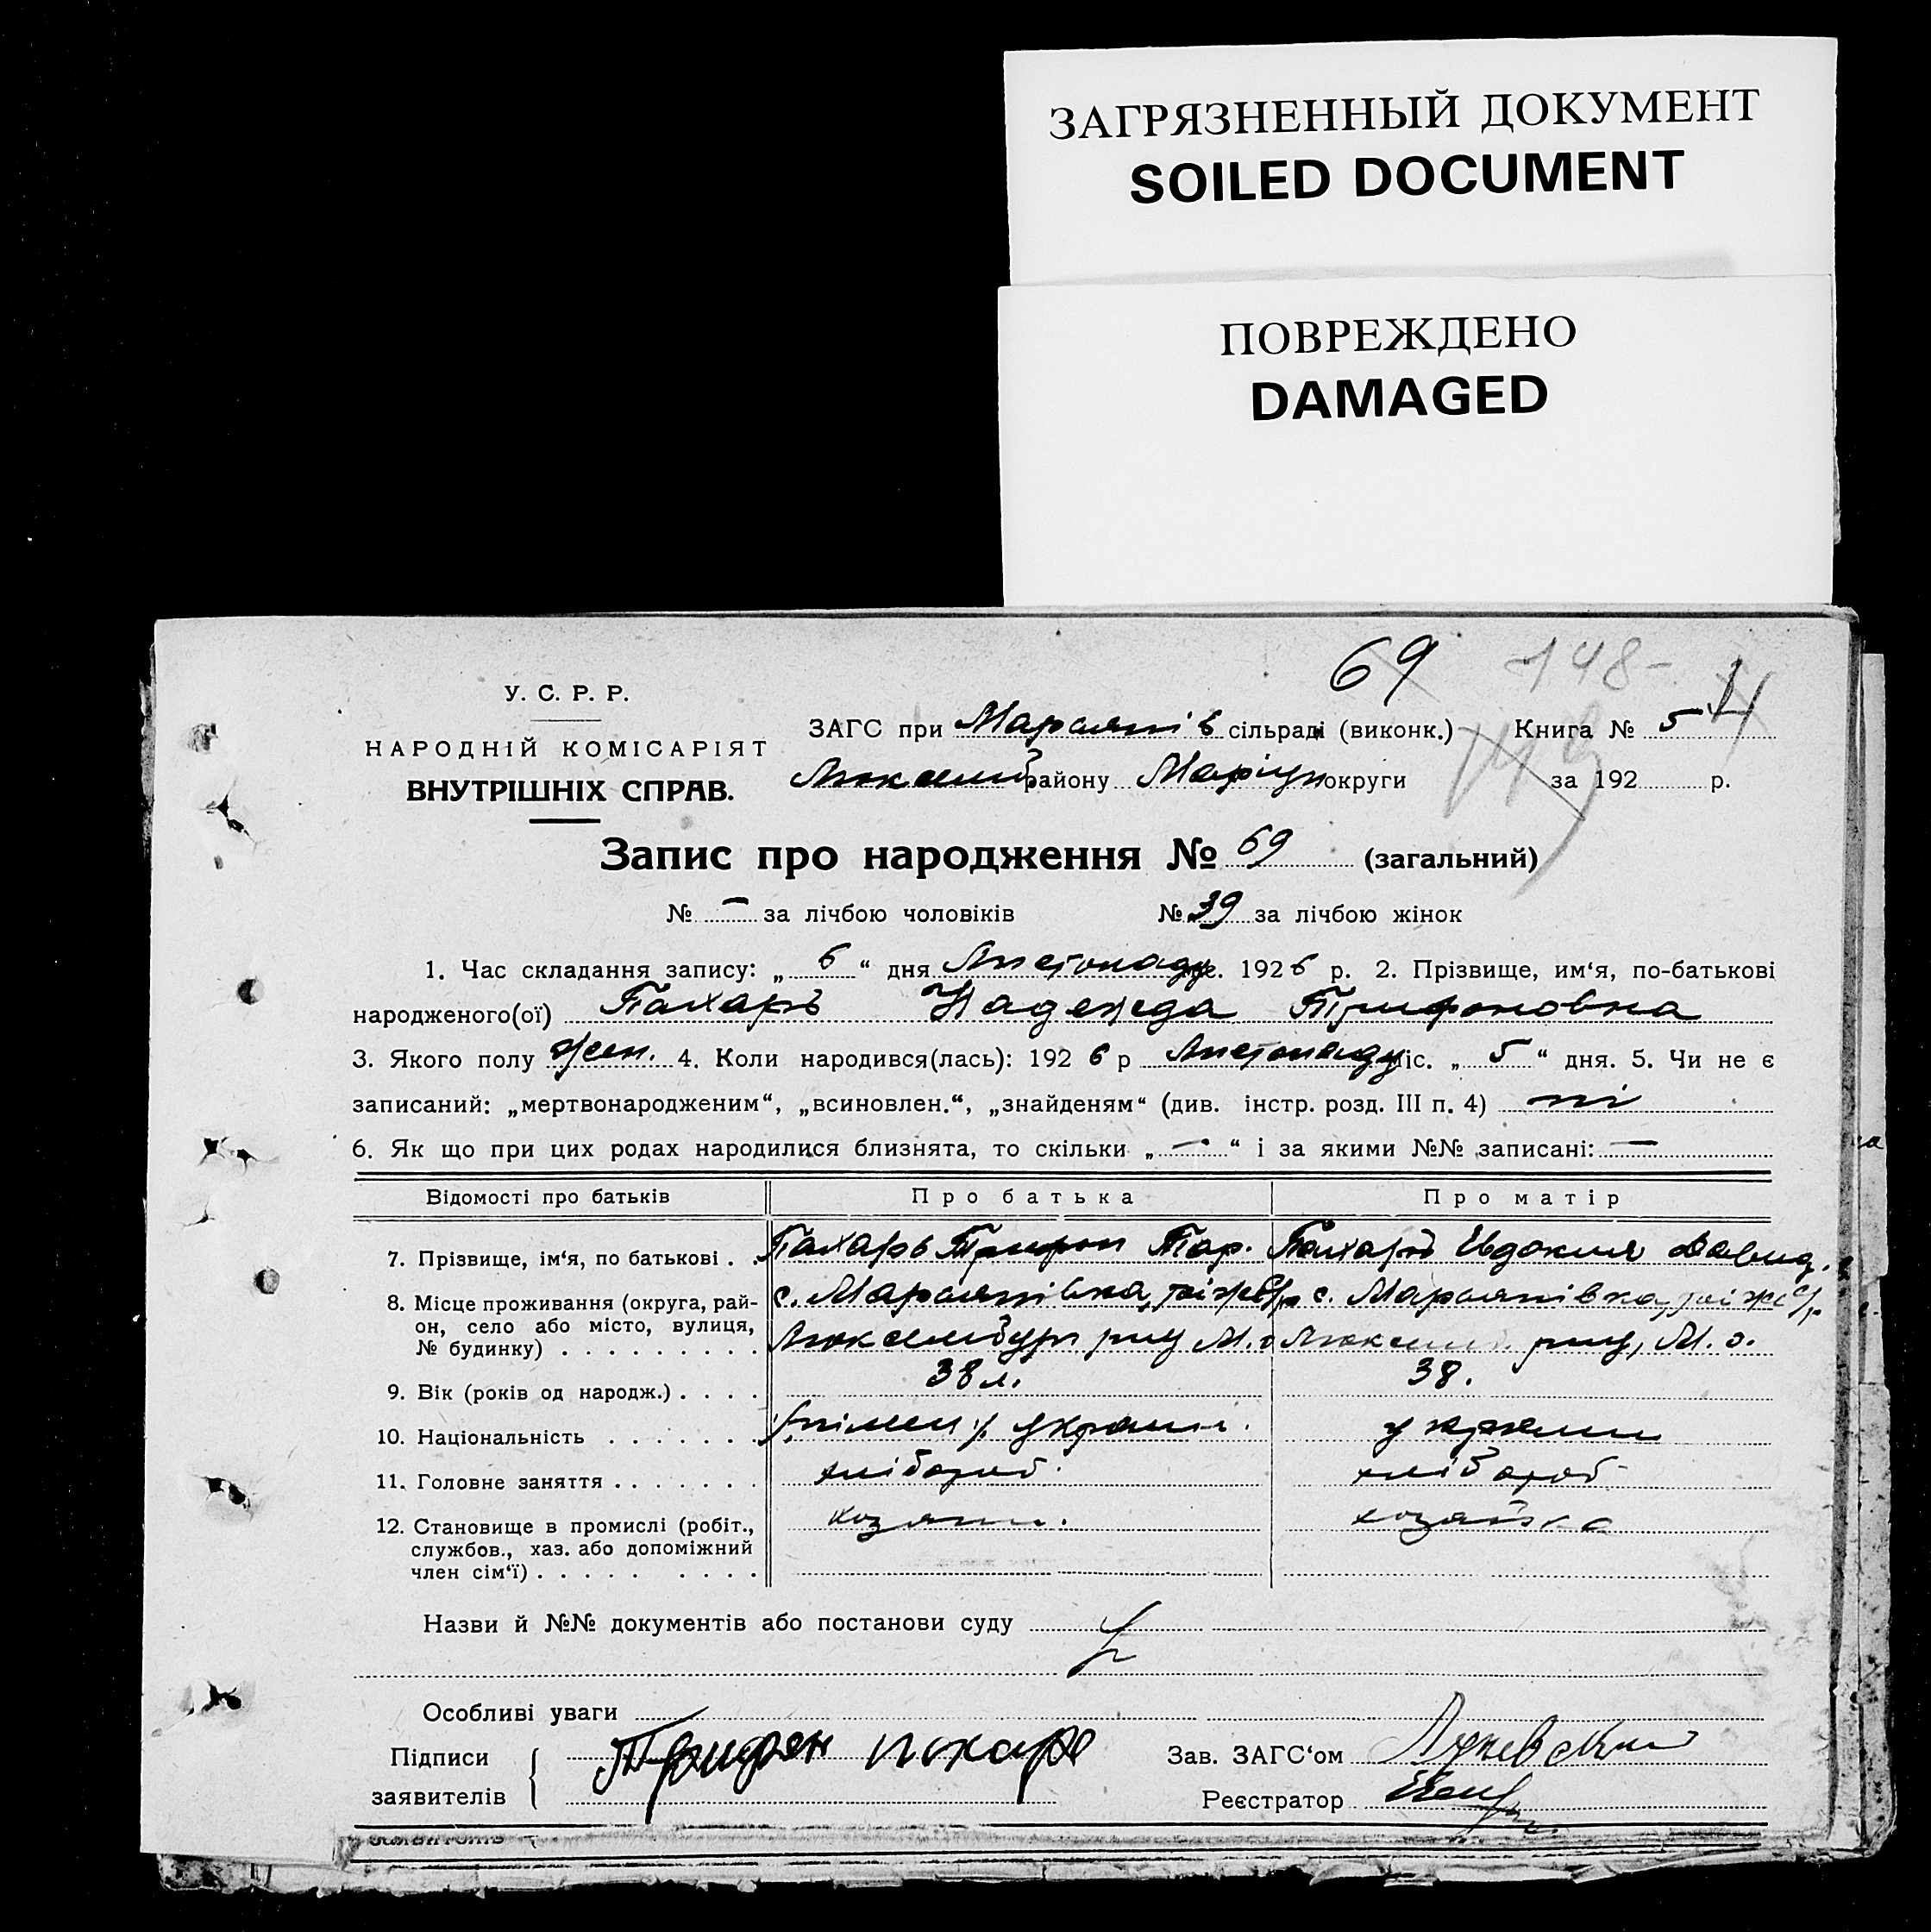 ЗАГРЯЗНЕННЫЙ ДОКУМЕНТ
SOILED DOCUMENT
ПОВРЕЖДЕНО
DAMAGED
69 148-
У. С. Р. Р.
НАРОДНІЙ КОМІСАРІЯТ
ВНУТРІШНІХ СПРАВ.
ЗАГС при сільраді (виконк.) Книга № 5
району Маріуп округи за 192 р.
Запис про народження № 69 (загальний)
№ - за лічбою чоловіків № 39 за лічбою жінок
1. Час складання запису: „ 6 “ дня Листопаду 1926 р. 2. Прізвище, им‘я, по-батькові
народженого(ої) Пахарь Надежда Трифоновна
3. Якого полу жен. 4. Коли народився(лась): 1926 р Листопаду міс. „ 5 “ дня. 5. Чи не є
записаний: „мертвонародженим“, „всиновлен.“, „знайденям“ (див. інстр. розд. III п. 4) ні
6. Як що при цих родах народилися близнята, то скільки „ - “ і за якими №№ записані: -
Відомості про батьків Про батька Про матір
7. Прізвище, ім‘я, по батькові . . Пахарь Трифон Пахарь Евдокия Давид.
8. Місце проживання (округа, рай-
он, село або місто, вулиця,
№ будинку) . . . . . . . . . с. с.
Люксембург М. о. М. о.
9. Вік (років од народж.) . . . . 38 л. 38.
10. Національність . . . . . . . україн. україн
11. Головне заняття . . . . . . . хлібороб. хлібороб
12. Становище в промислі (робіт.,
службов., хаз. або допоміжний
член сім‘ї) . . . . . . . . . хозяин. хозяйка
Назви й №№ документів або постанови суду
Особливі уваги
Підписи
заявителів
Трифон Похарь
Зав. ЗАГС‘ом
Реєстратор